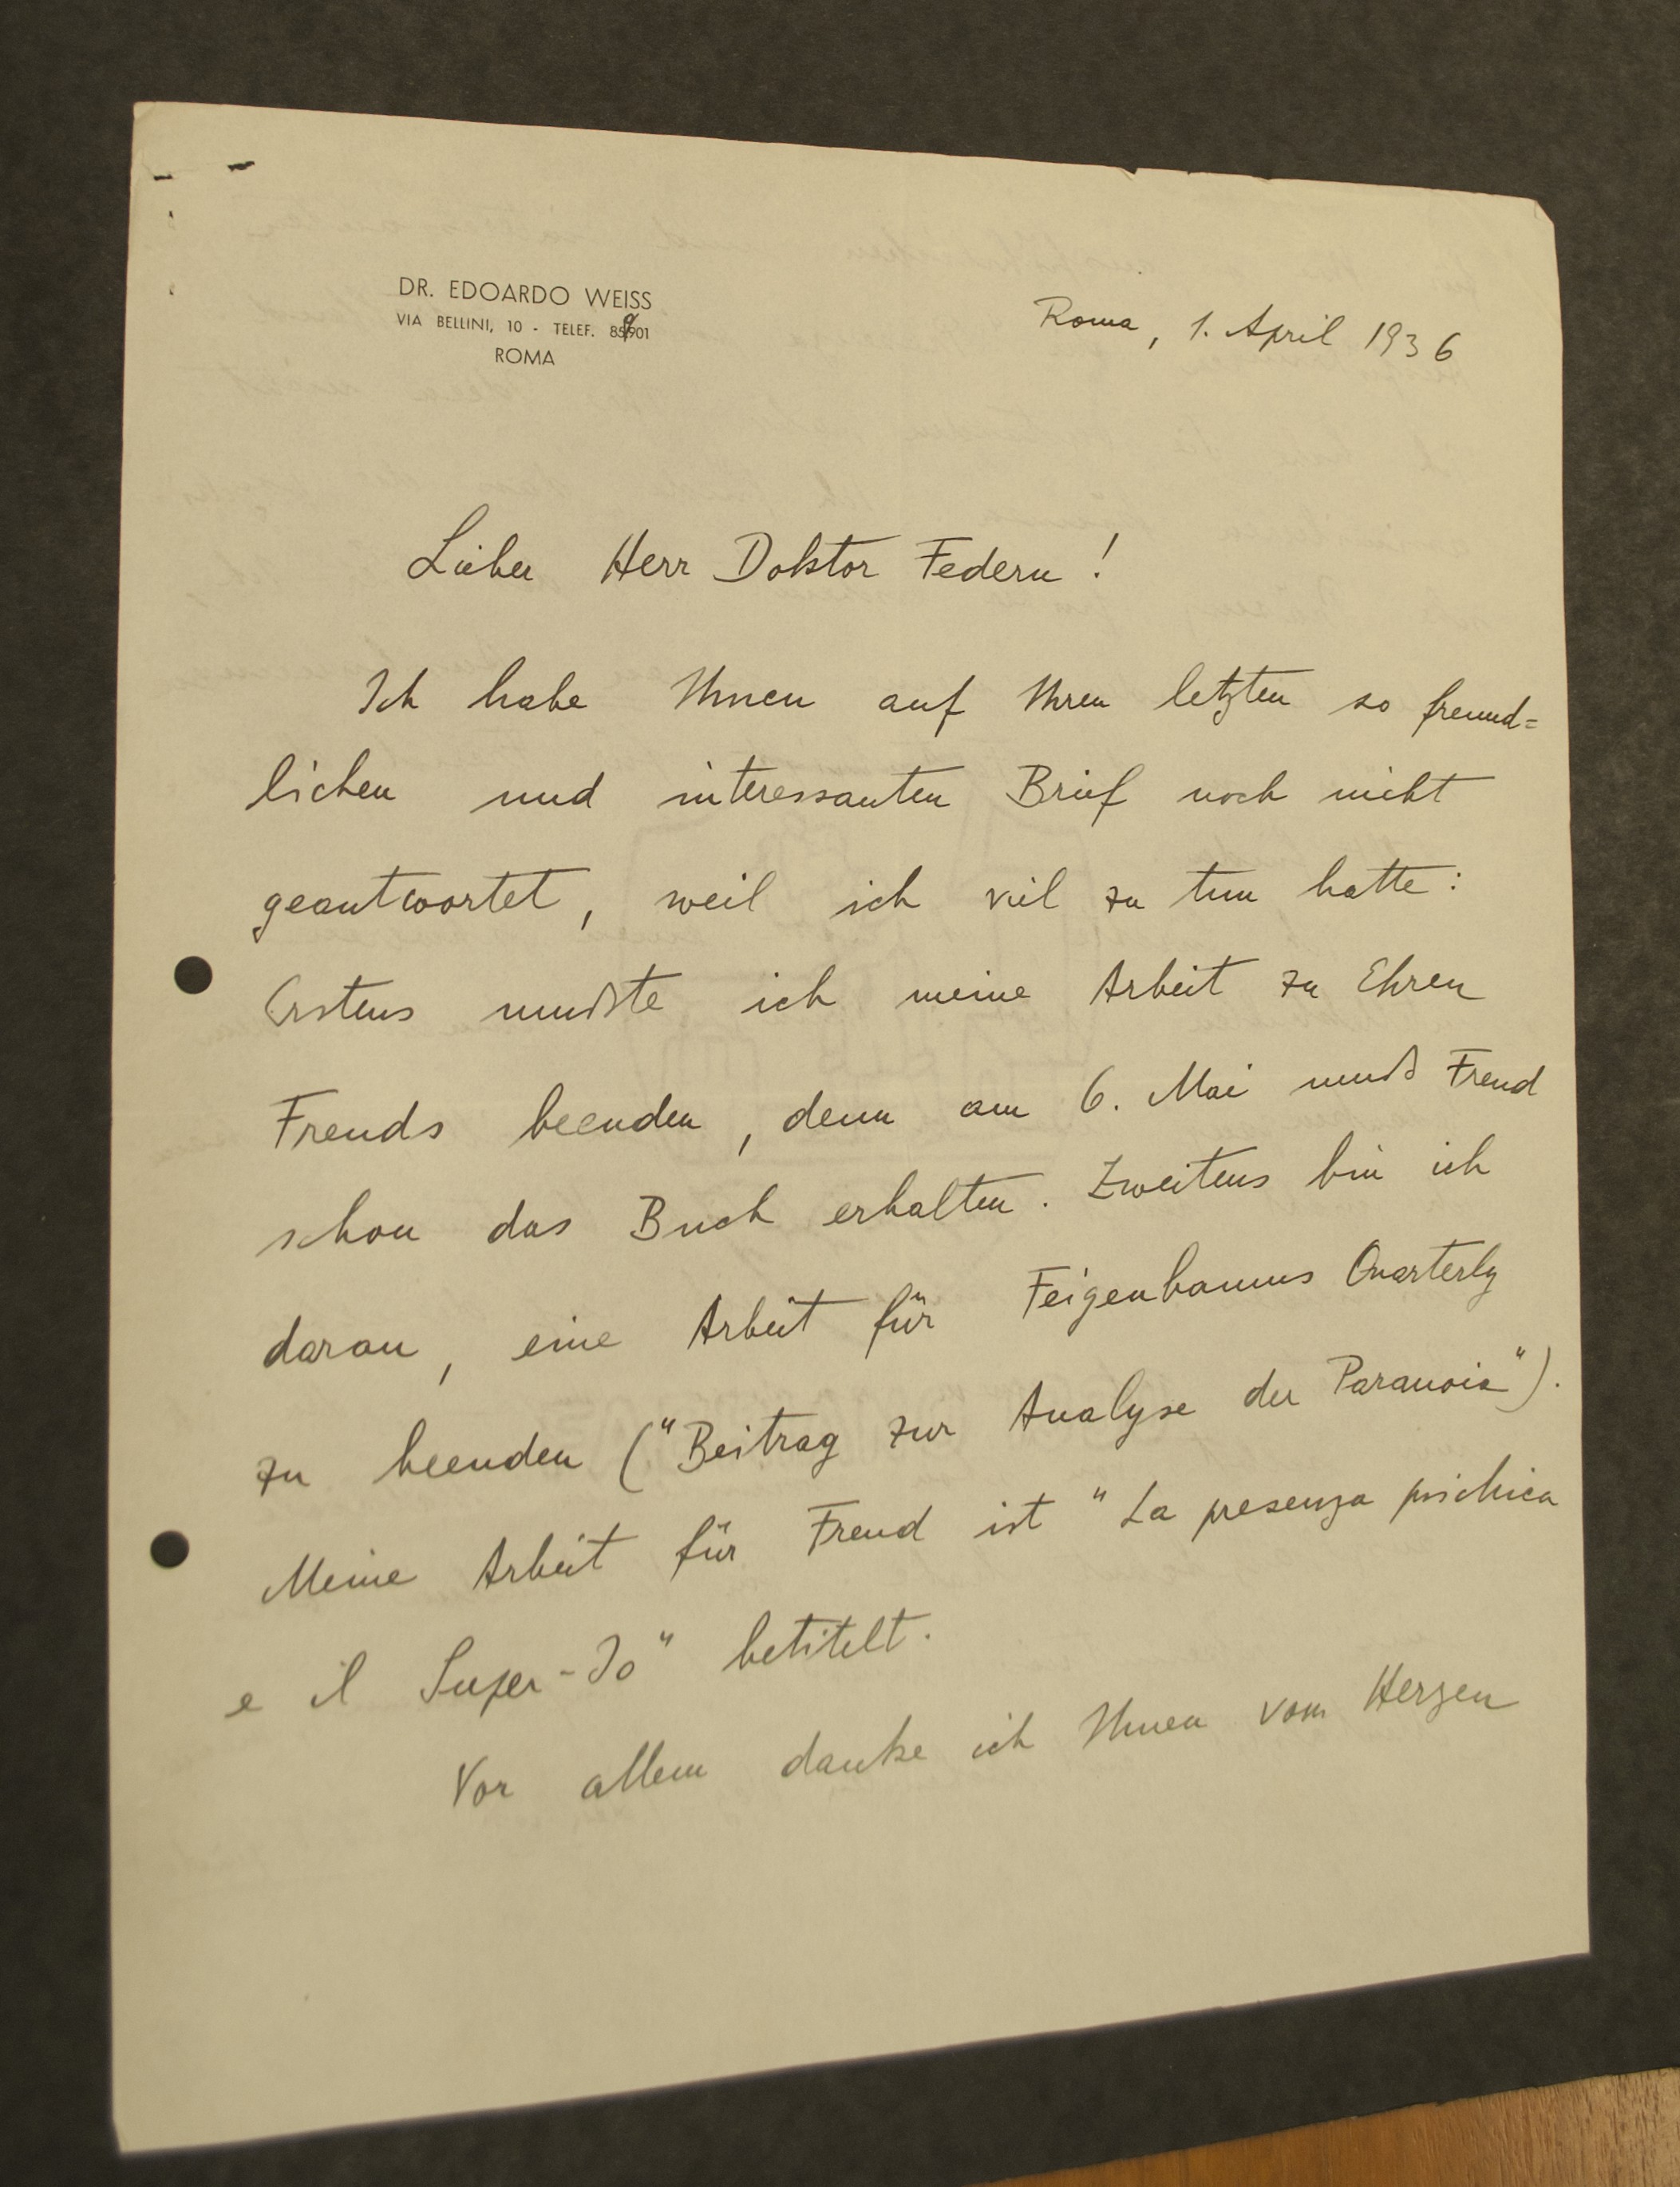 DR. EDOARDO WEISS
VIA BELLINI, 10 - TELEF.
ROMA
Roma, 1. April 1936
Lieber Herr Doktor Federn!
Ich habe Ihnen auf Ihren letzten so freund=
lichen und interessanten Brief noch nicht
geantwortet, weil ich viel zu tun hatte:
Erstens mußte ich meine Arbeit zu Ehren
Freuds beenden, denn am 6. Mai muß Freud
schon das Buch erhalten. Zweitens bin ich
daran, eine Arbeit für Feigenbaums Quarterly
zu beenden ("Beitrag zur Analyse der Paranoia").
Meine Arbeit für Freud ist "La presenza psichica
e il Super-Io" betitelt.
Vor allem danke ich Ihnen vom Herzen